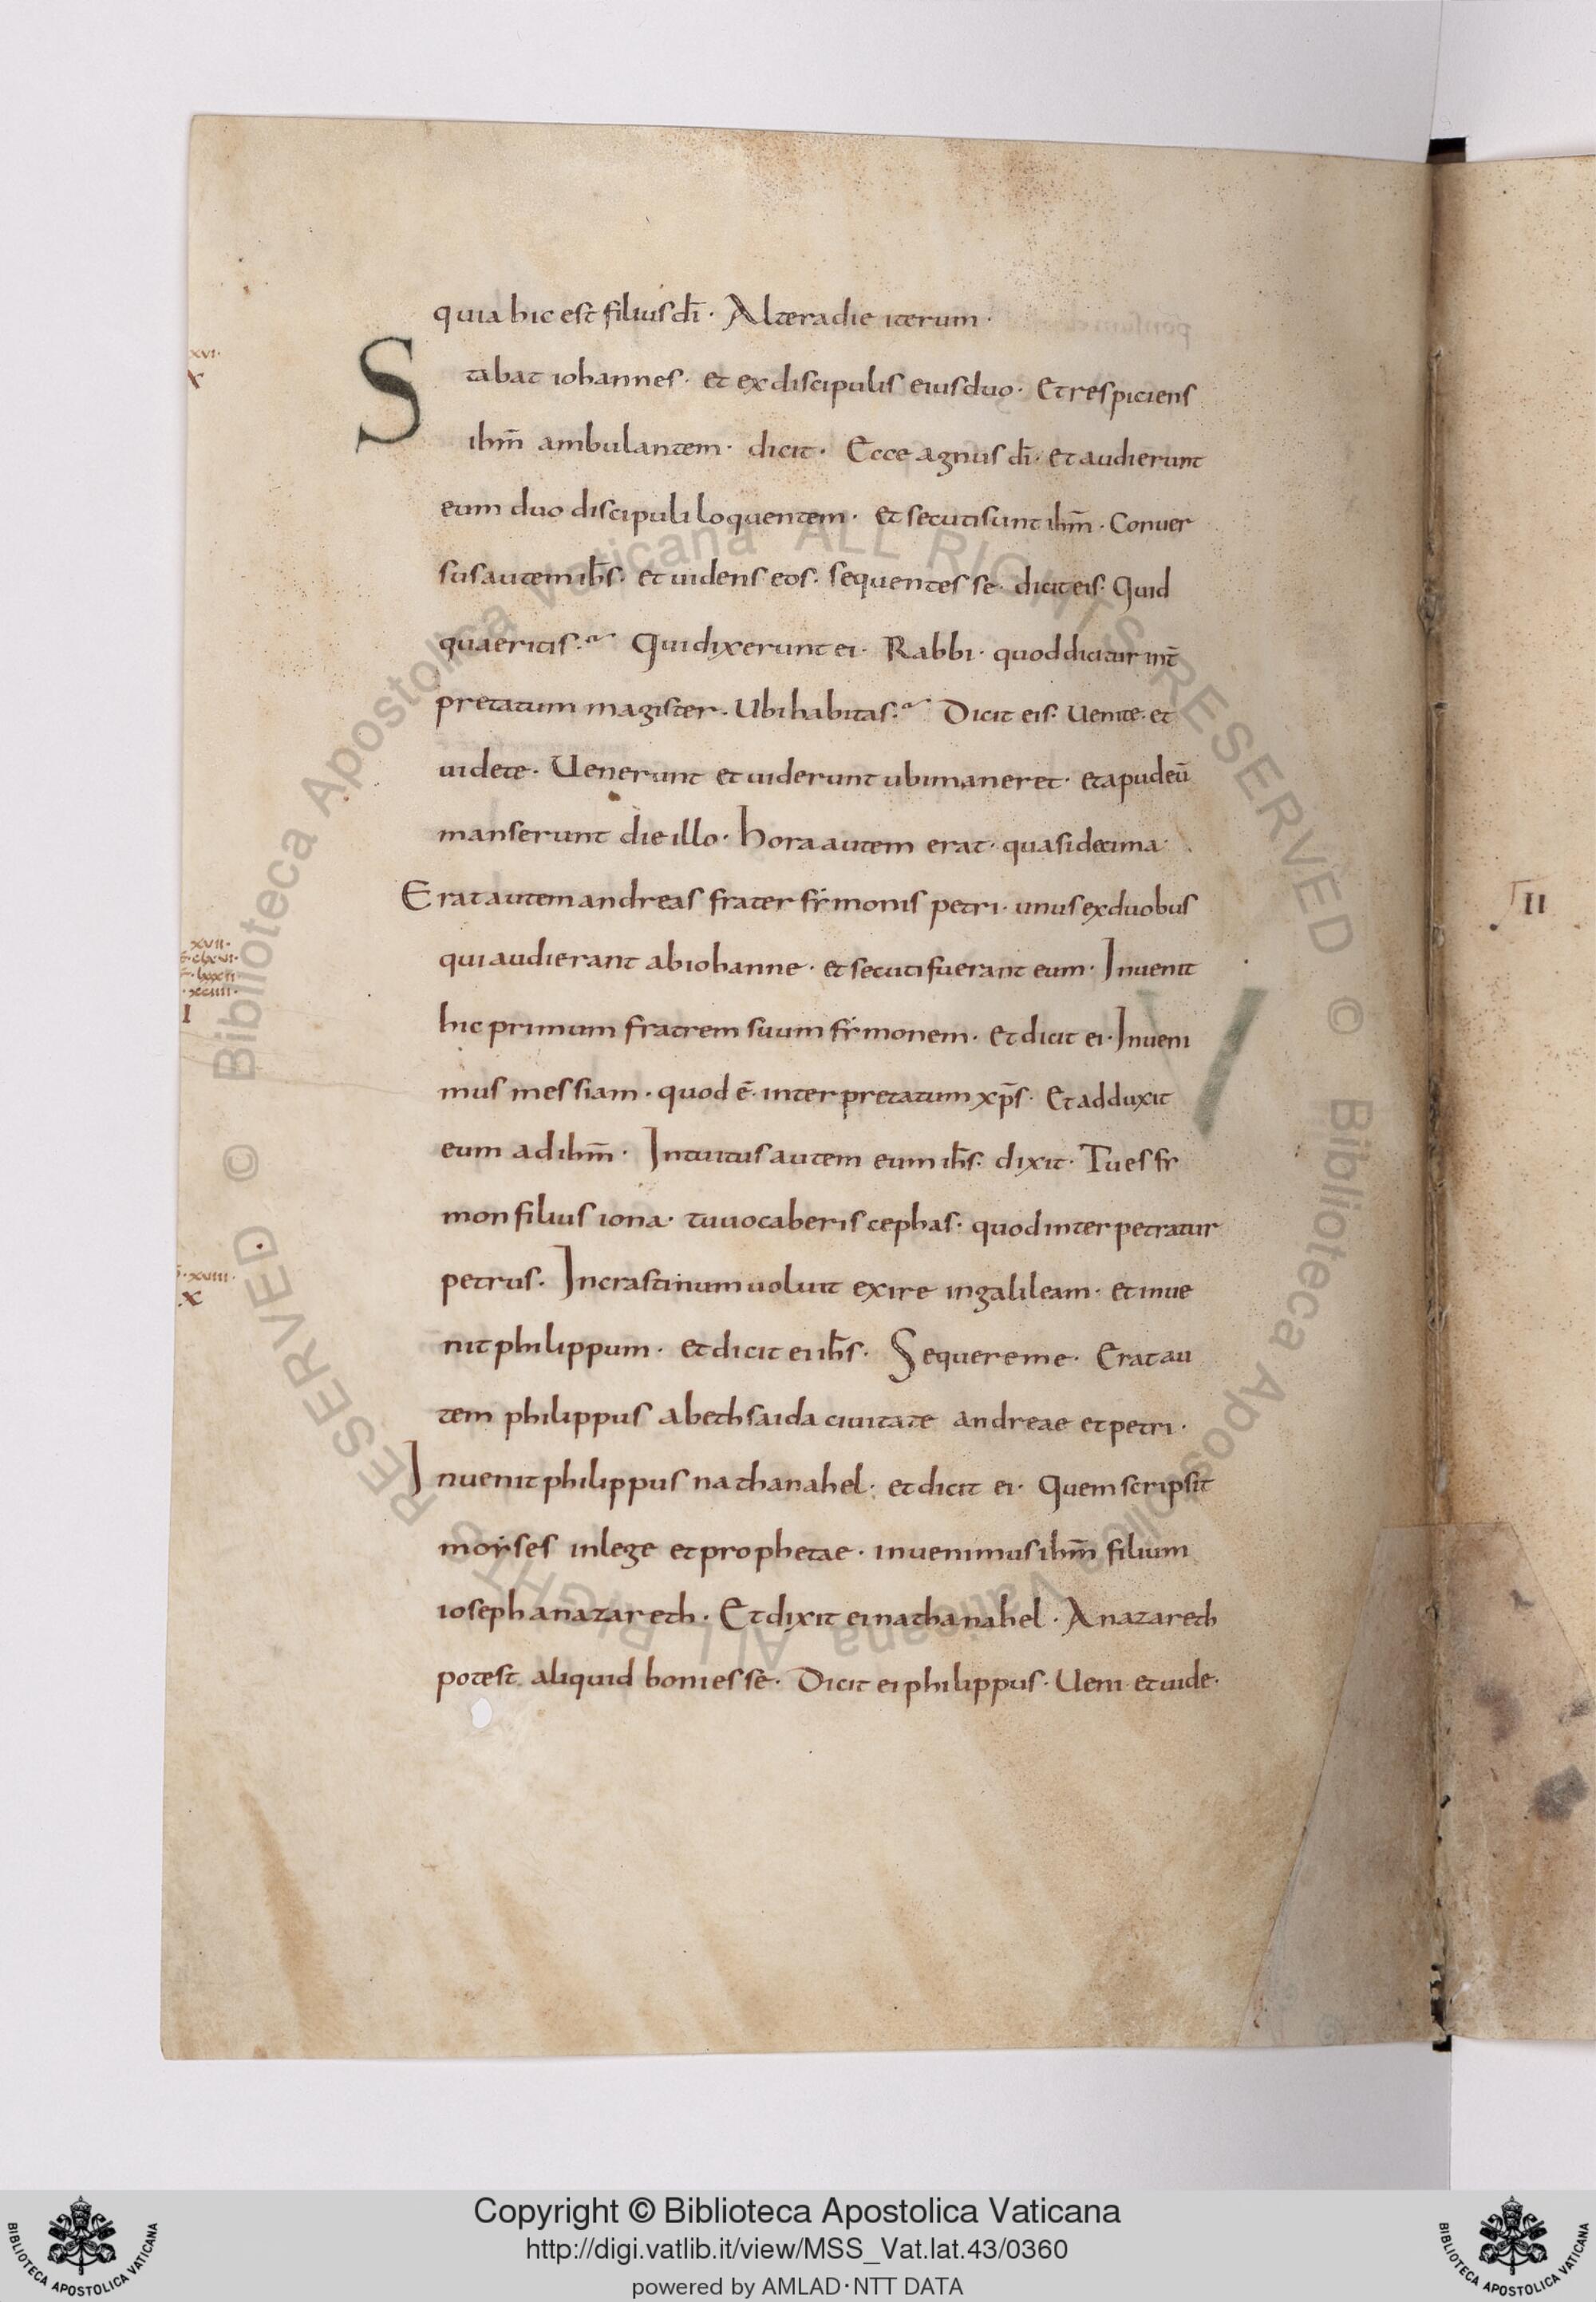 quia hic est filius dī · Altera die iterum ·
Stabat iohannes · et ex discipulis eius duo · Et respiciens
ihm̄ ambulantem · dicit · Ecce agnus dī · et audierunt
eum duo discipuli loquentem · et secuti sunt ihm̄ · Conuer
sus autem ihs̄ · et uidens eos · sequentes se · dicit eis · Quid
quaeritis · Qui dixerunt ei · Rabbi · quod dicitur int̄
pretatum magister · Ubi habitas · Dicit eis · Uenite · et
uidete · Uenerunt et uiderunt ubi maneret · et apud eū
manserunt die illo · hora autem erat · quasi decima ·
Erat autem andreas frater symonis petri · unus ex duobus
qui audierant ab iohanne · et secuti fuerant eum · Inuenit
hic primum fratrem suum symonem · et dicit ei · Inueni
mus messiam · quod ē · interpretatum xp̄s · Et adduxit
eum ad ihm̄ · Intuitus autem eum ihs̄ · dixit · Tu es sy
mon filius iona · tu uocaberis cephas · quod interpetratur
petrus · In crastinum uoluit exire in galileam · et inue
nit philippum · et dicit ei ihs̄ · Sequere me · Erat au
tem philippus a bethsaida ciuitate andreae et petri ·
Inuenit philippus nathanahel · et dicit ei · Quem scripsit
moyses in lege et prophetae · inuenimus ihm̄ filium
ioseph a nazareth · Et dixit ei nathanahel · A nazareth
potest aliquid boni esse · Dicit ei philippus · Ueni et uide ·
xvi ·
X
xvii ·
· xciiii ·
I
· xviii ·
X
II
Biblioteca Apostolica Vaticana ALL RIGHTS RESERVED ©
Copyright © Biblioteca Apostolica Vaticana
http://digi.vatlib.it/view/MSS_Vat.lat.43/0360
powered by AMLAD·NTT DATA
BIBLIOTECA APOSTOLICA VATICANA
BIBLIOTECA APOSTOLICA VATICANA